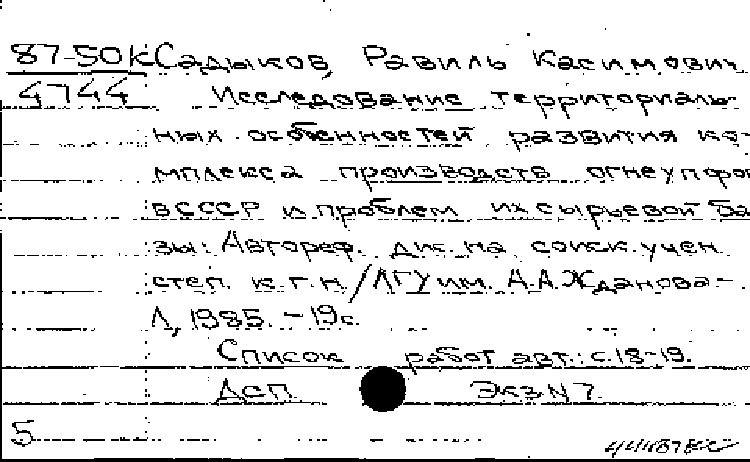 87-50К Садыков, Равиль Касимович
4744 Исследование территориаль-
ных особенностей развития ко-
мплекса производств огнеупоров
в СССР и проблем их сырьевой ба-
зы: Автореф. дис. на соиск. учен.
степ. к.г.н. / ЛГУ им. А.А.Жданова.-
Л, 1985. - 19с.
Список работ авт.: с.18-19.
ДСП Экз N 7
5